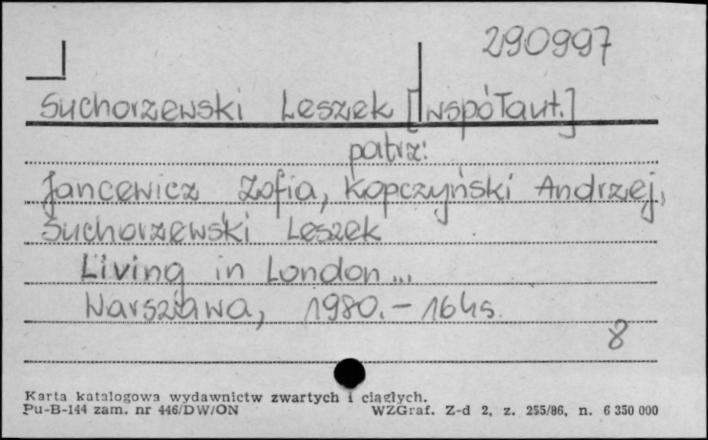 290997
Suchorzewski Leszek [współaut.]
patrz:
Jancewicz Zofia, Kopczyński Andrzej,
Suchorzewski Leszek
Living in London...
Warszawa, 1980. - 164s.
8
Karta katalogowa wydawnictw zwartych i ciągłych.
Pu-B-144 zam. nr 446/DW/ON WZGraf. Z-d 2, z. 255/86, n. 6 350 000